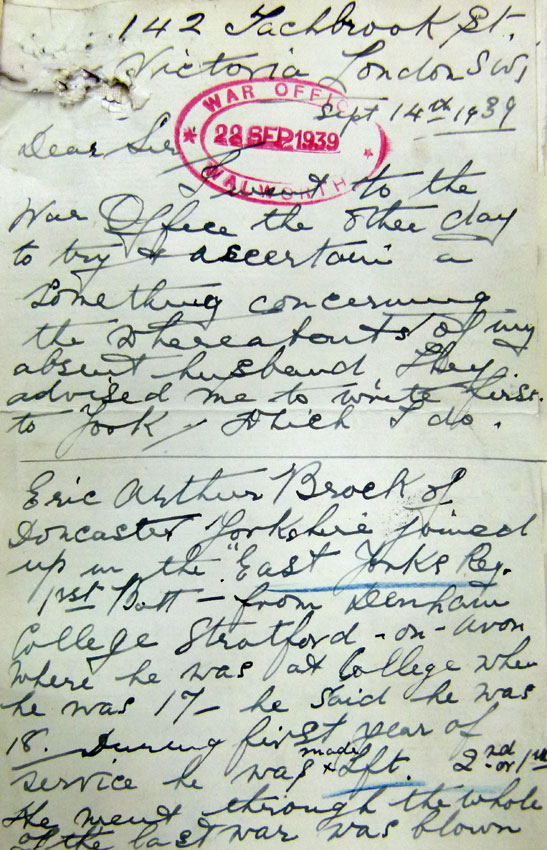 142 Tachbrook St.
Victoria London SW1
Sept 14th 1939
WAR OFFICE
22 SEP 1939
WALWORTH
Dear Sir
I went to the
War Office the other day
to try & ascertain a
something concerning
the whereabouts of my
absent husband They
advised me to write first
to York, which I do.
Eric Arthur Brock of
Doncaster Yorkshire joined
up in the "East Yorks Reg.
1st Batt - from Denham
College Stratford-on-Avon
where he was at College when
he was 17 - he said he was
18. During first year of
service he was made Lft. 2nd or 1st
He went through the whole
of the last war was blown